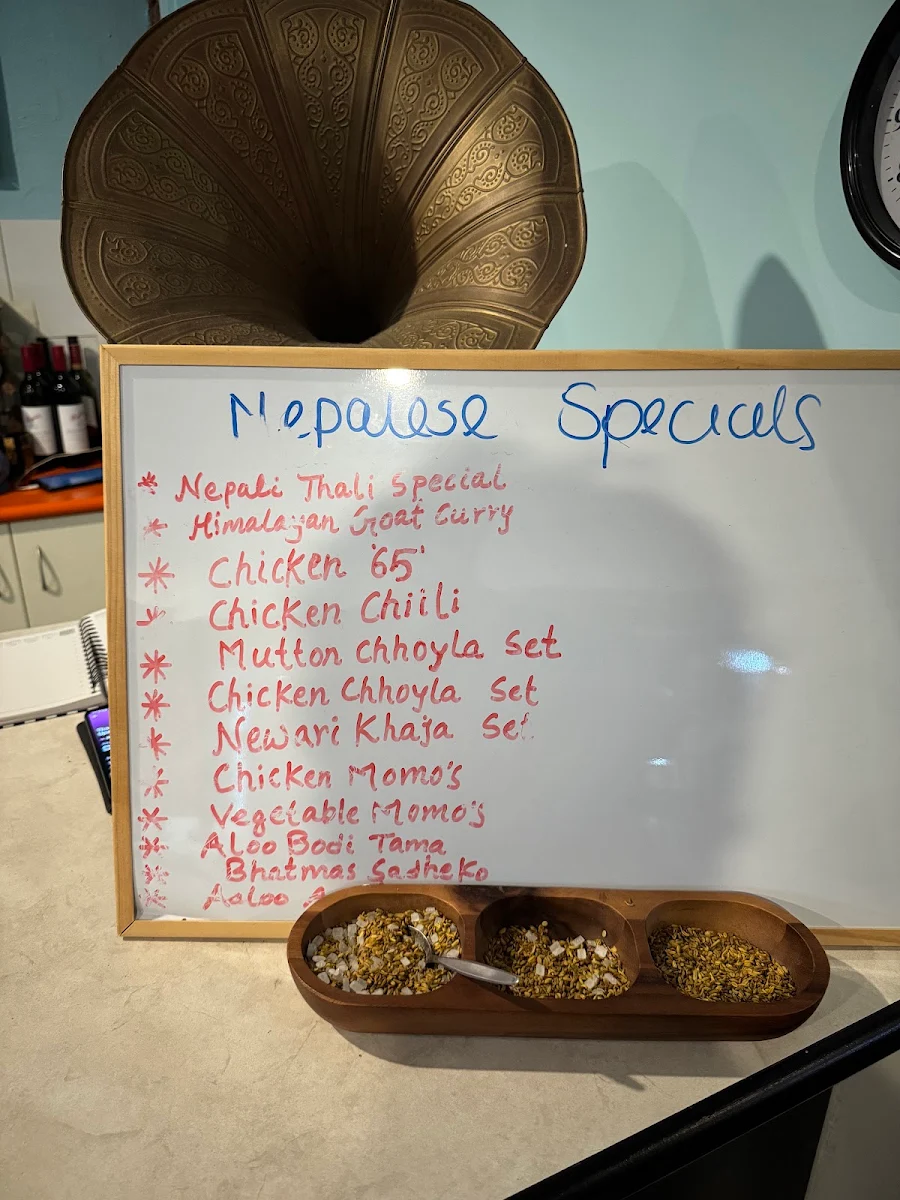 Nepalese Specials
* Nepali Thali Special
* Himalayan Goat Curry
* Chicken '65'
* Chicken Chiili
* Mutton Chhoyla Set
* Chicken Chhoyla Set
* Newari Khaja Set
* Chicken Momo's
* Vegetable Momo's
* Aloo Bodi Tama
* Bhatmas Sadheko
* Aaloo